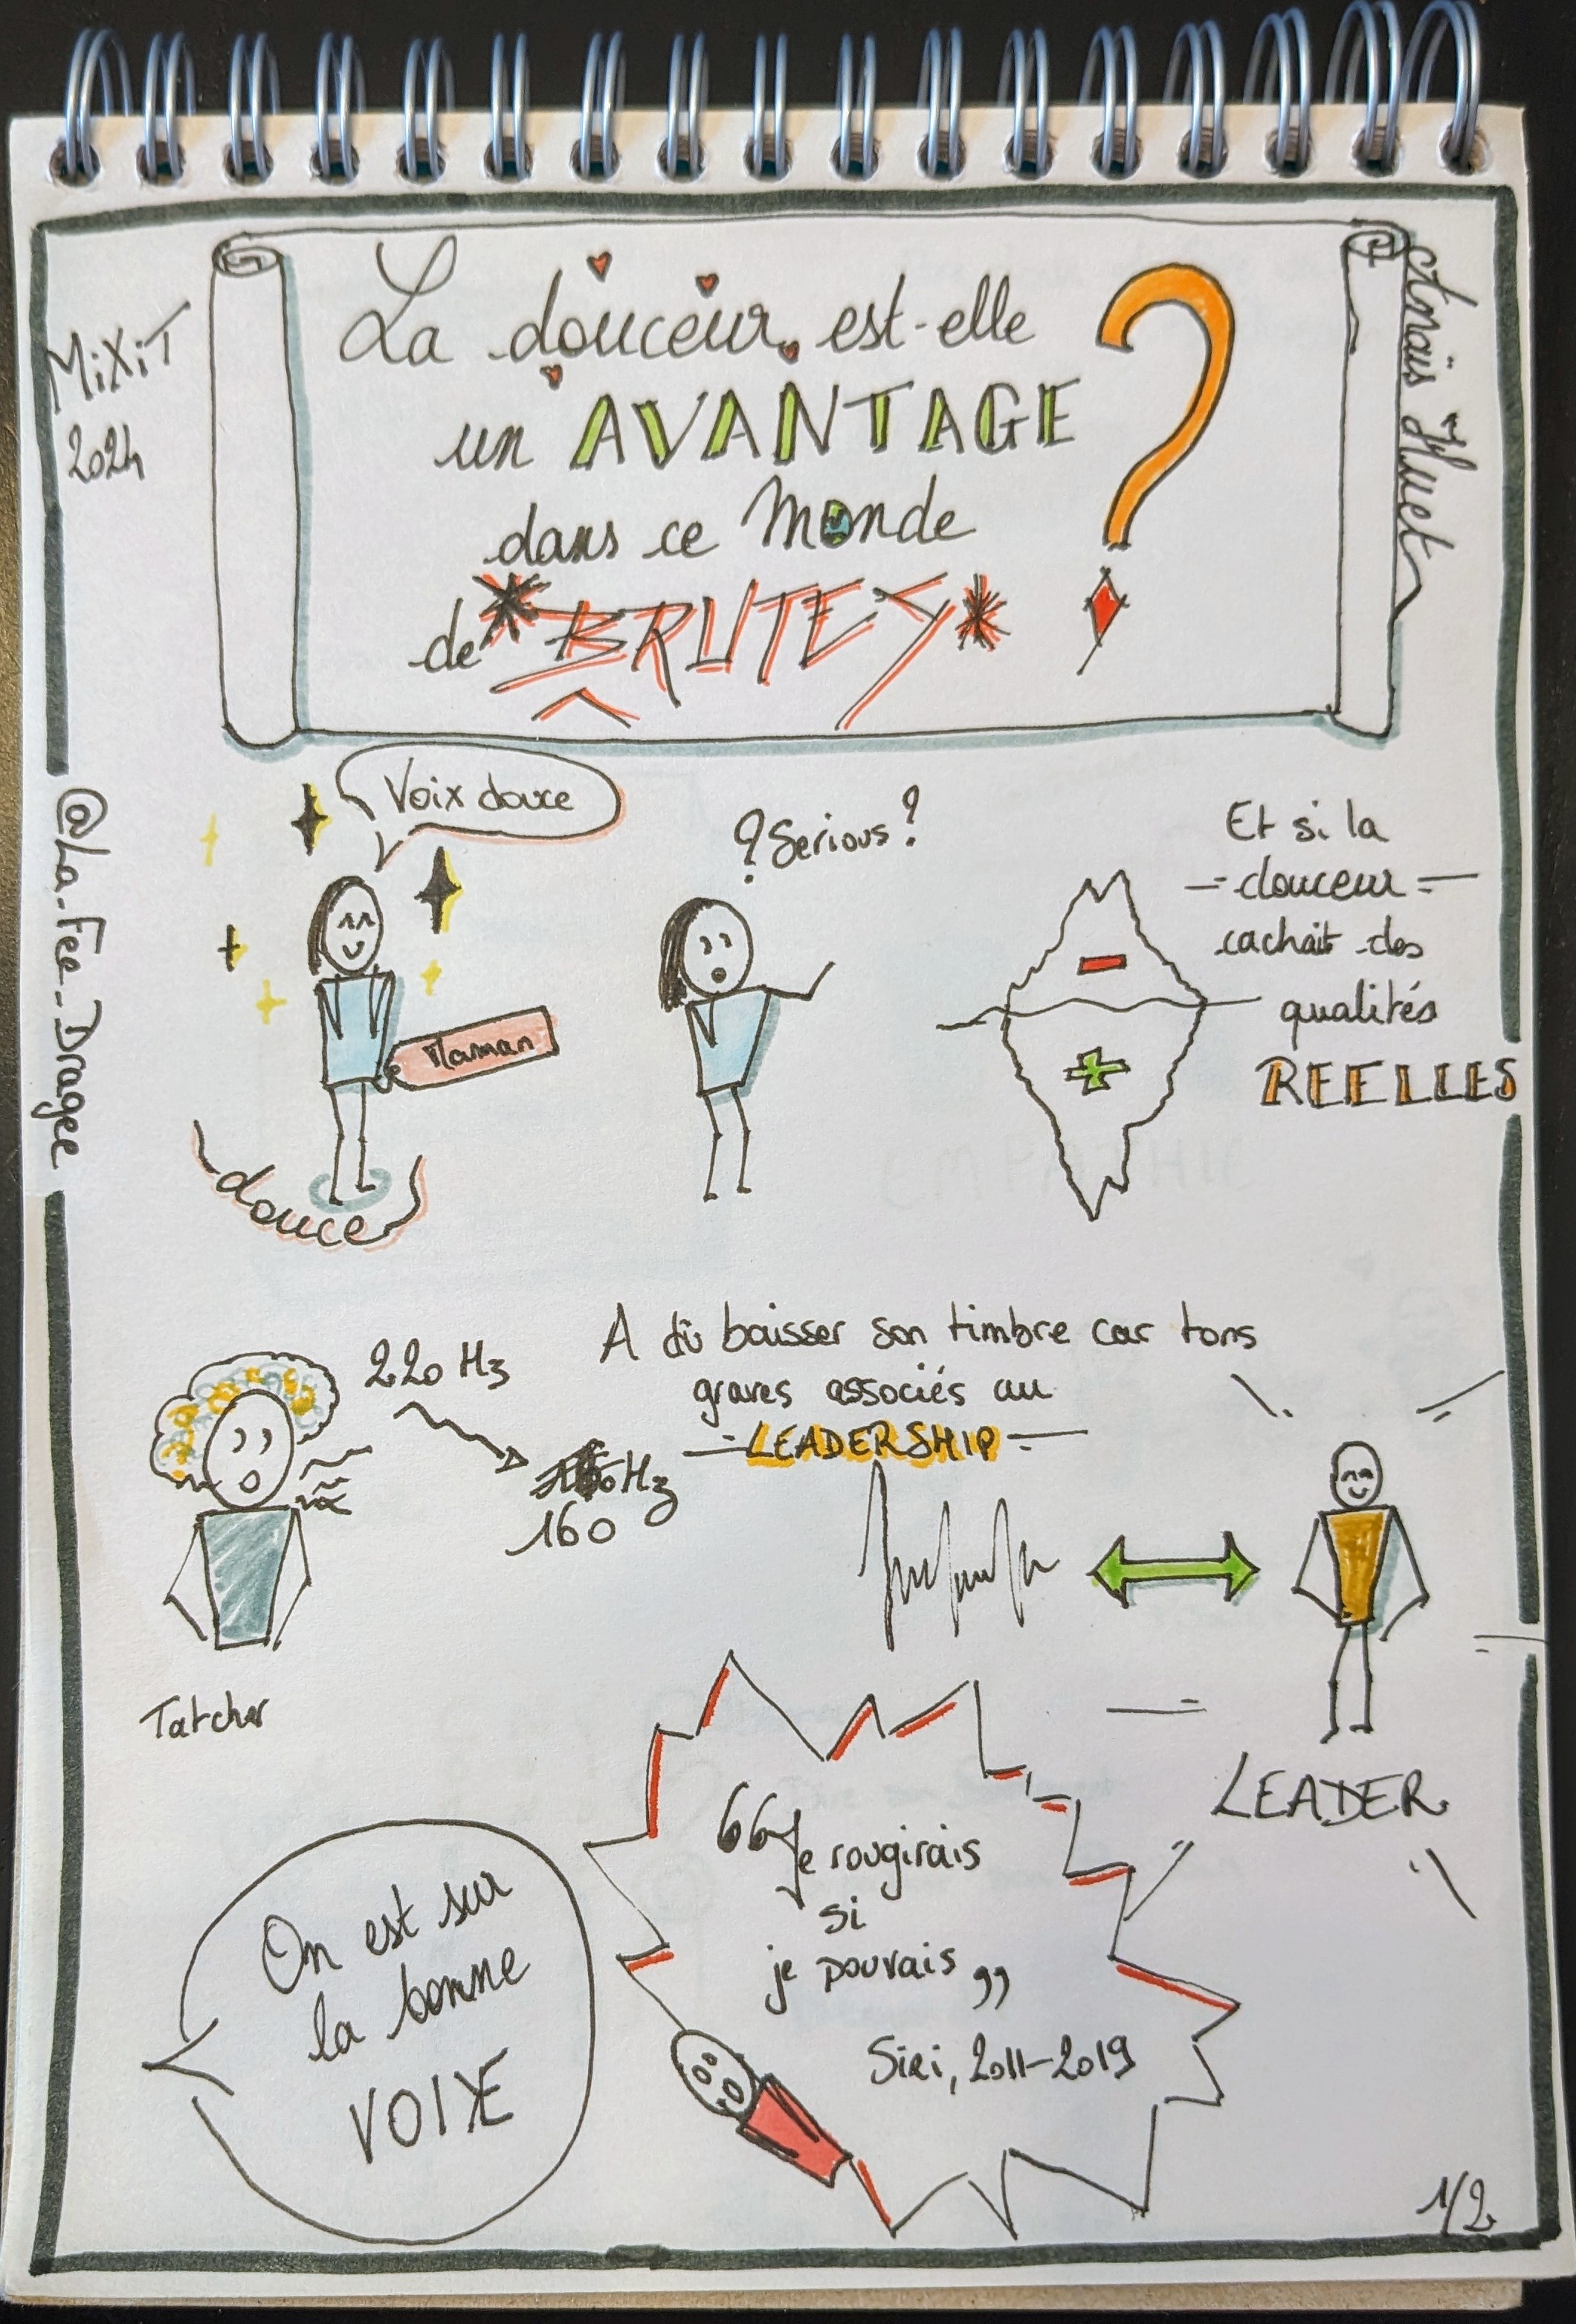 MiXiT
2024
La douceur est-elle
un AVANTAGE
dans ce Monde
de *BRUTES* ?
Anaïs Huet
@La_Fee_Dragee
Voix douce
Maman
douce
? Serious ?
Et si la
douceur
cachait des
qualités
REELLES
-
+
220 Hz
Hz
160
A dû baisser son timbre car tons
graves associés au
LEADERSHIP
Tatcher
LEADER
On est sur
la bonne
VOIXE
"Je rougirais
si
je pouvais"
Siri, 2011-2019
1/2